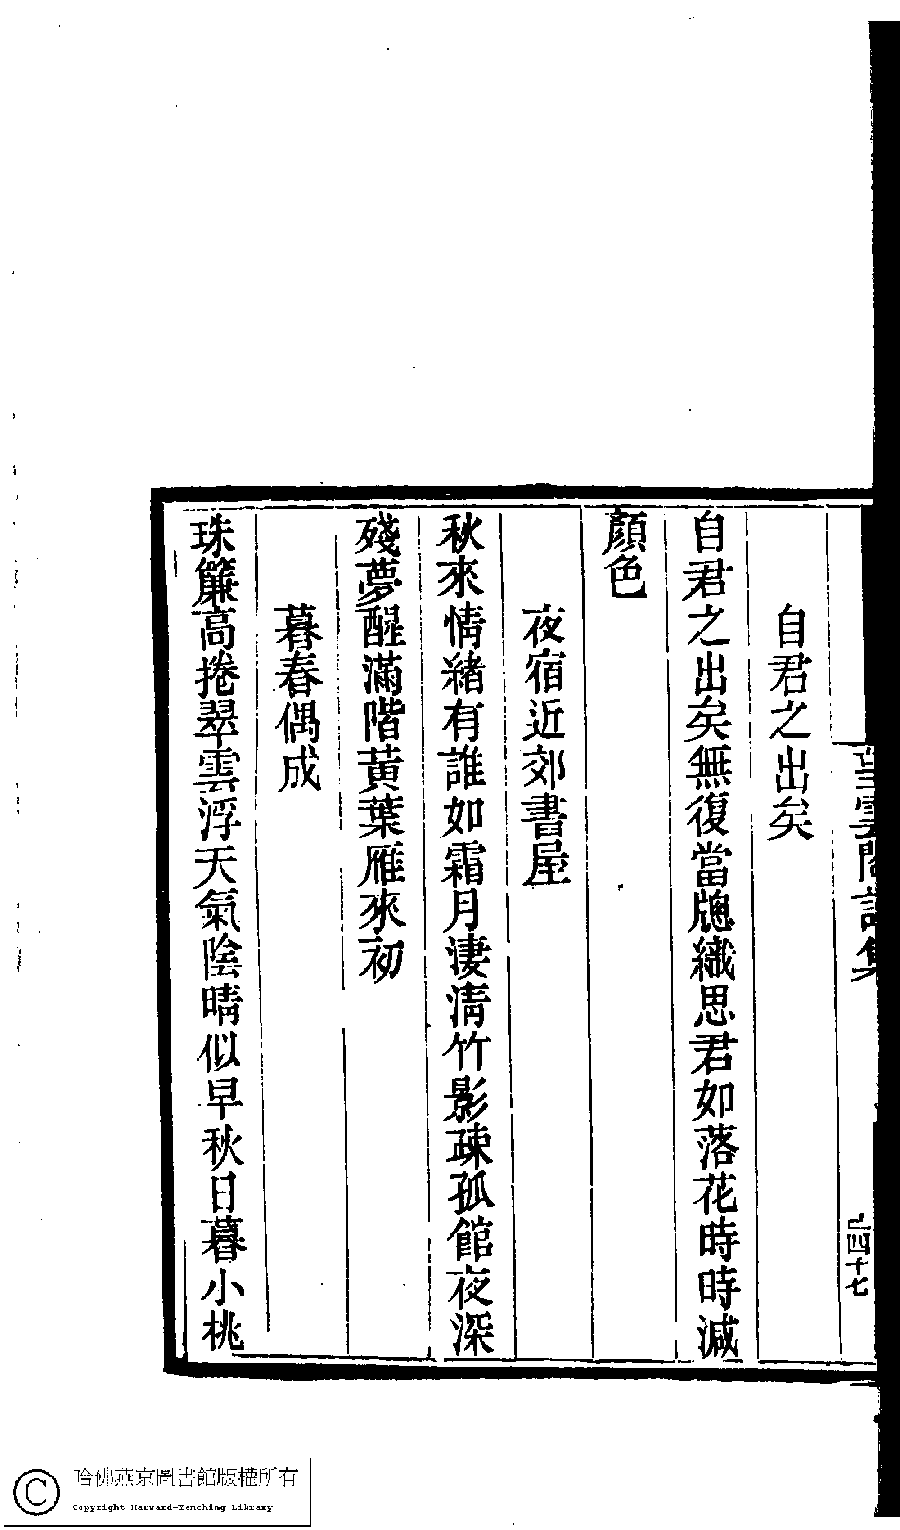 望雲閣詩集
四十七
自君之出矣
自君之出矣無復當牕織思君如落花時時減
顏色
夜宿近郊書屋
秋來情緒有誰如霜月淒淸竹影疎孤館夜深
殘夢醒滿階黃葉雁來初
暮春偶成
珠簾高捲翠雲浮天氣陰晴似早秋日暮小桃
哈佛燕京圖書館版權所有
Copyright Harvard-Yenching Library